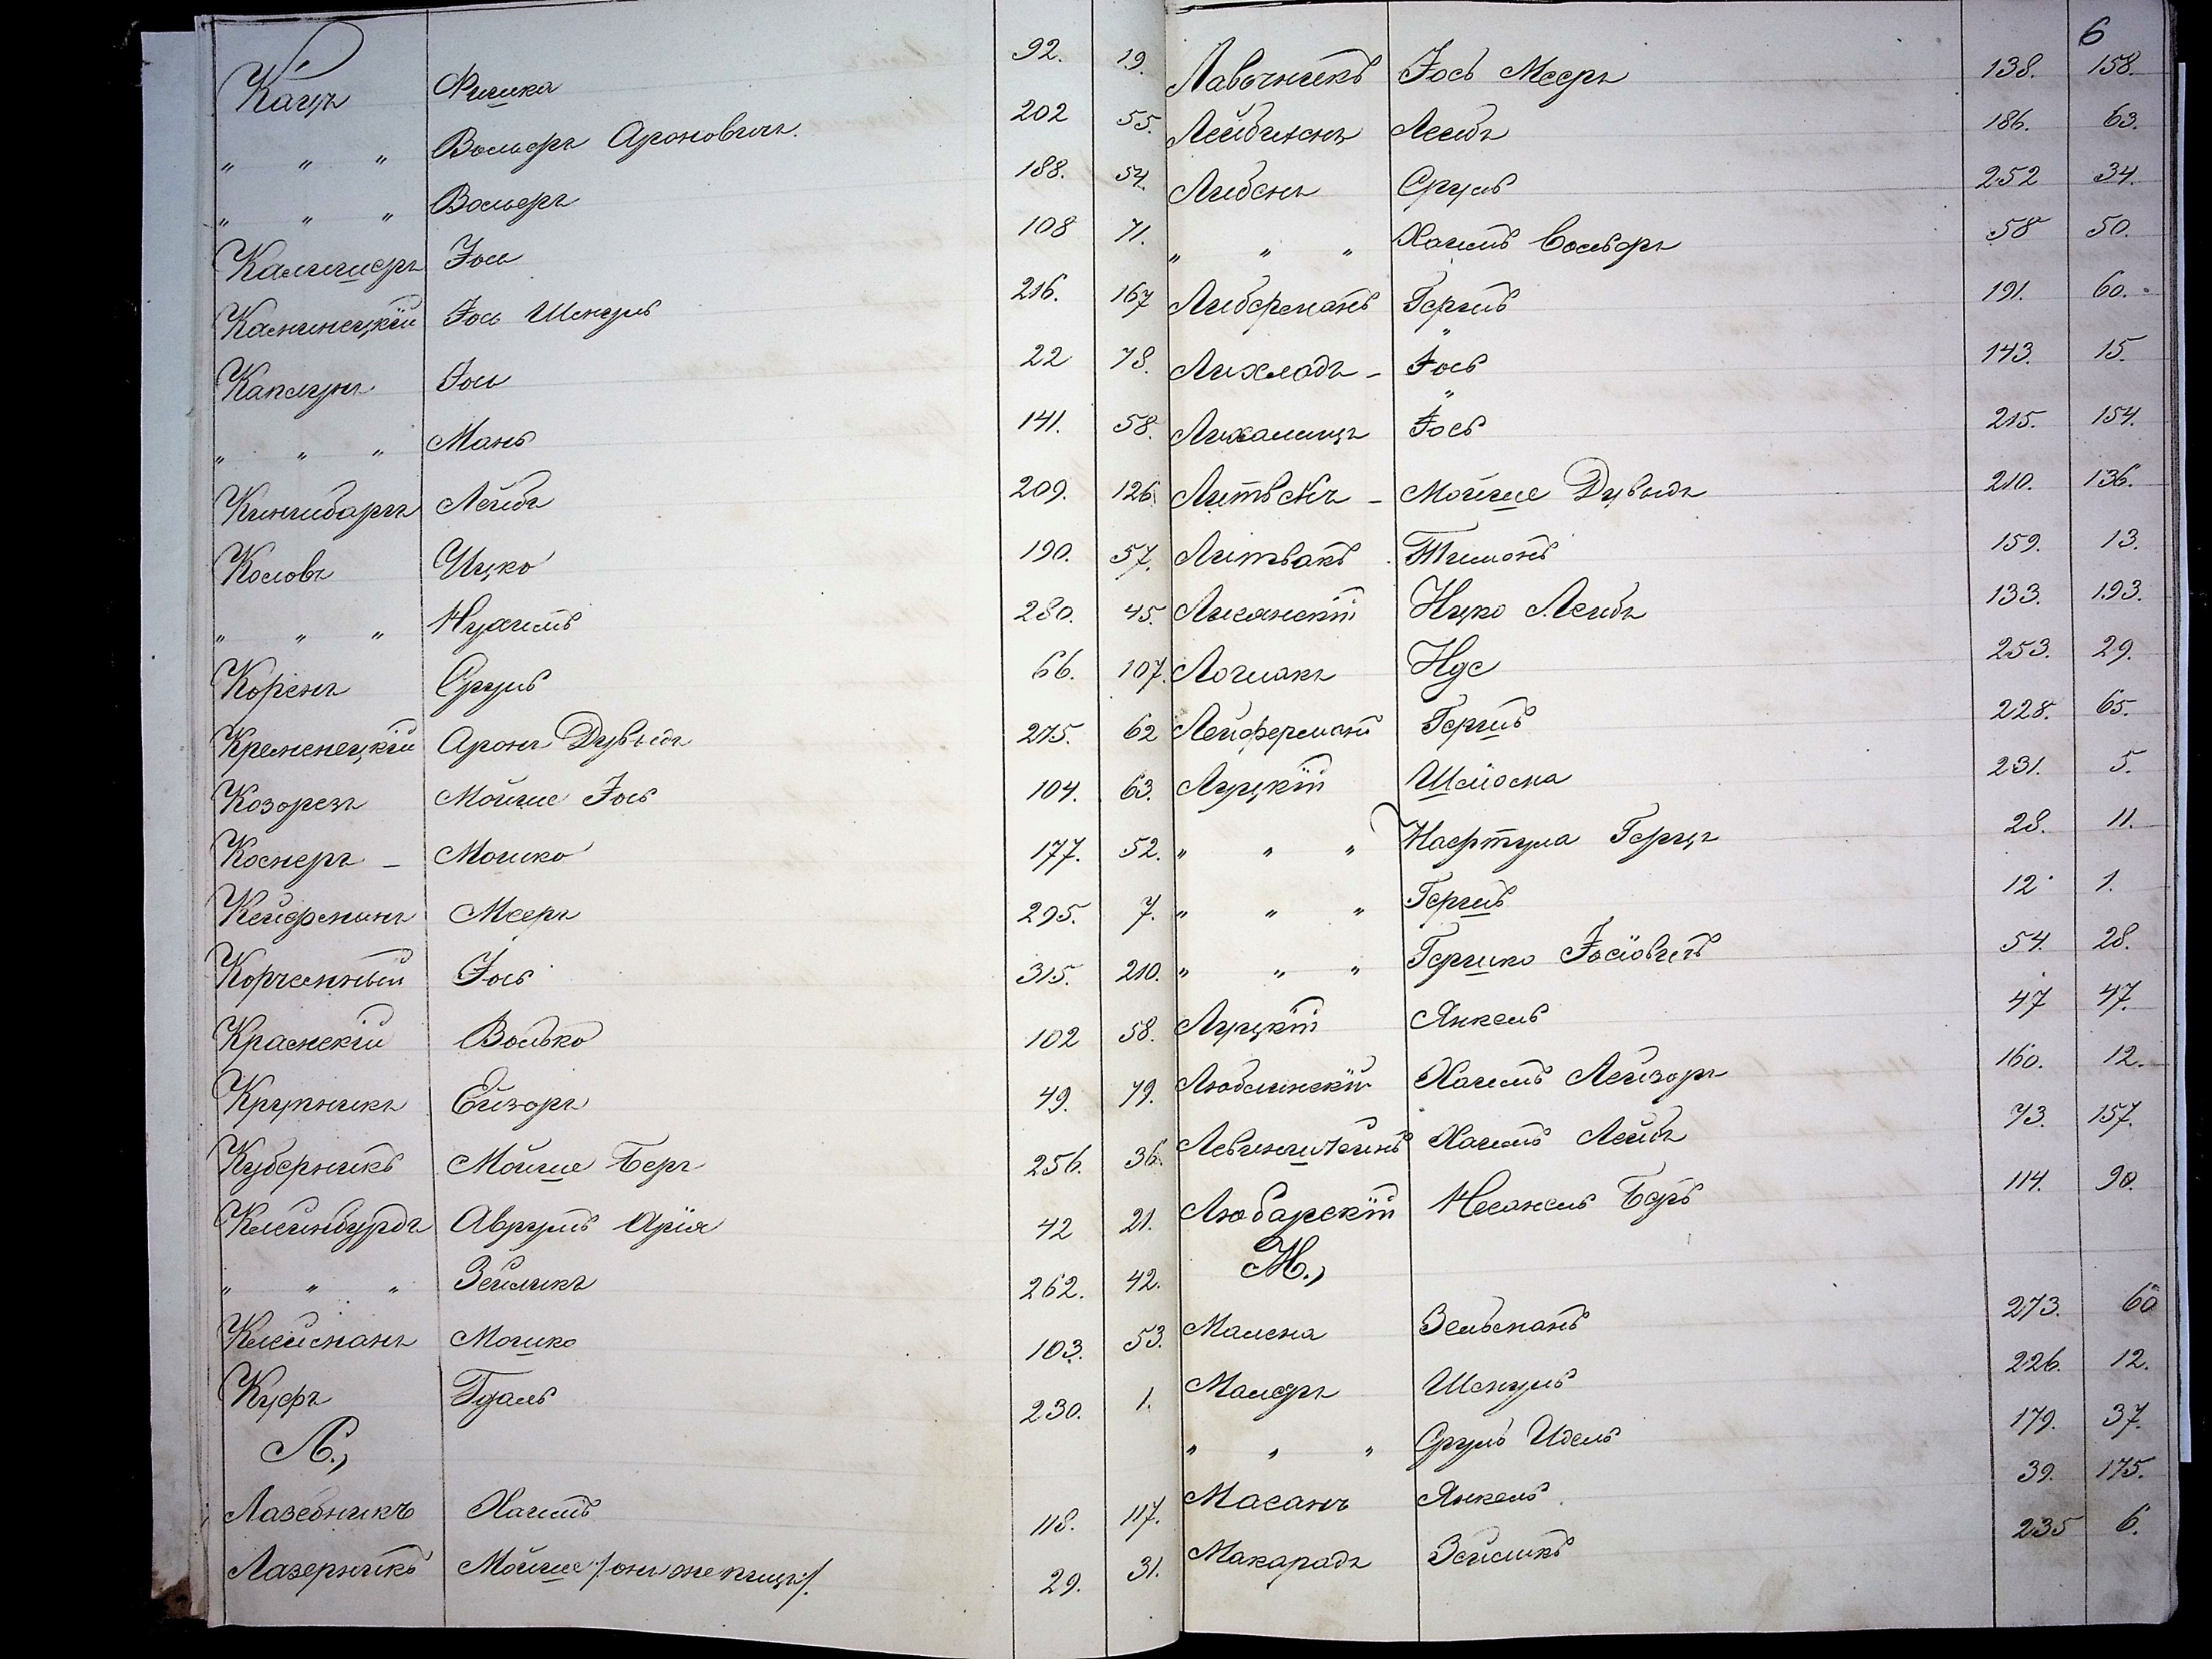 Кацъ Фишка 92. 19.
" " " Вольфъ Ароновичъ. 202 55.
" " " Вольфъ 188. 54.
Калишеръ Іось 108 71.
Каминецкій Іось Шмуль 216. 167
Каплунъ Іось 22 78.
" " " Мань 141. 58.
Кинисбаргъ Лейбъ 209. 126.
Косовъ Ицко 190. 57.
" " " Нухимъ 280. 45.
Коренъ Сруль 66. 107.
Кременецкій Аронъ Дувыдъ 275. 62
Козорезъ Мойше Іось 104. 63.
Коснеръ - Мошко 177. 52.
Кейфманъ Мееръ 295. 7.
Корчемный Іось 315. 210.
Краснскій Волько 102 58.
Крупникъ Ейзоръ 49. 79.
Куберникъ Мойше Беръ 256. 36.
Клейнбурдъ Аврумъ Арія 42 21.
" " " Зейликъ 262. 42.
Клейманъ Мошко 103. 53.
Куфъ Гдаль 230. 1.
Л.,
Лазебникъ Хаимъ 118. 117.
Лазерникъ Мойше /онъ же Кацъ/. 29. 31.
6
Лавочникъ Іось Мееръ 138. 158.
Лейбзонъ Лейбъ 186. 63.
Либенъ Сруль 252 34.
" " " Хаимъ Вольфъ 58 50.
Либерманъ Гершъ 191. 60.
Лихладъ - Іось 143. 15.
Лихалицъ Іось 215. 154.
Литвакъ - Мойше Дувыдъ 210. 136.
Литвакъ Тимонъ 159. 13.
Лисянскій Ицко Лейбъ 133. 193.
Лошакъ Нде 253. 29.
Лейферманъ Гершъ 228. 65.
Луцкій Шлёома 231. 5.
" " " Нафтула Герцъ 28. 11.
" " " Гершъ 12. 1.
" " " Гершко Іосіовичъ 54. 28.
Луцкій Янкель 47 47.
Люблинскій Хаимъ Лейзоръ 160. 12.
Левинштеинъ Хаимъ Лейбъ 73. 157.
Любарскій Несанель Беръ 114. 90.
М.,
Малеча Зельманъ 273. 60
Малеръ Шмуль 226. 12.
" " " Сруль Идель 179. 37.
Масанъ Янкель 39. 175.
Макарадъ Зейликъ 235 6.